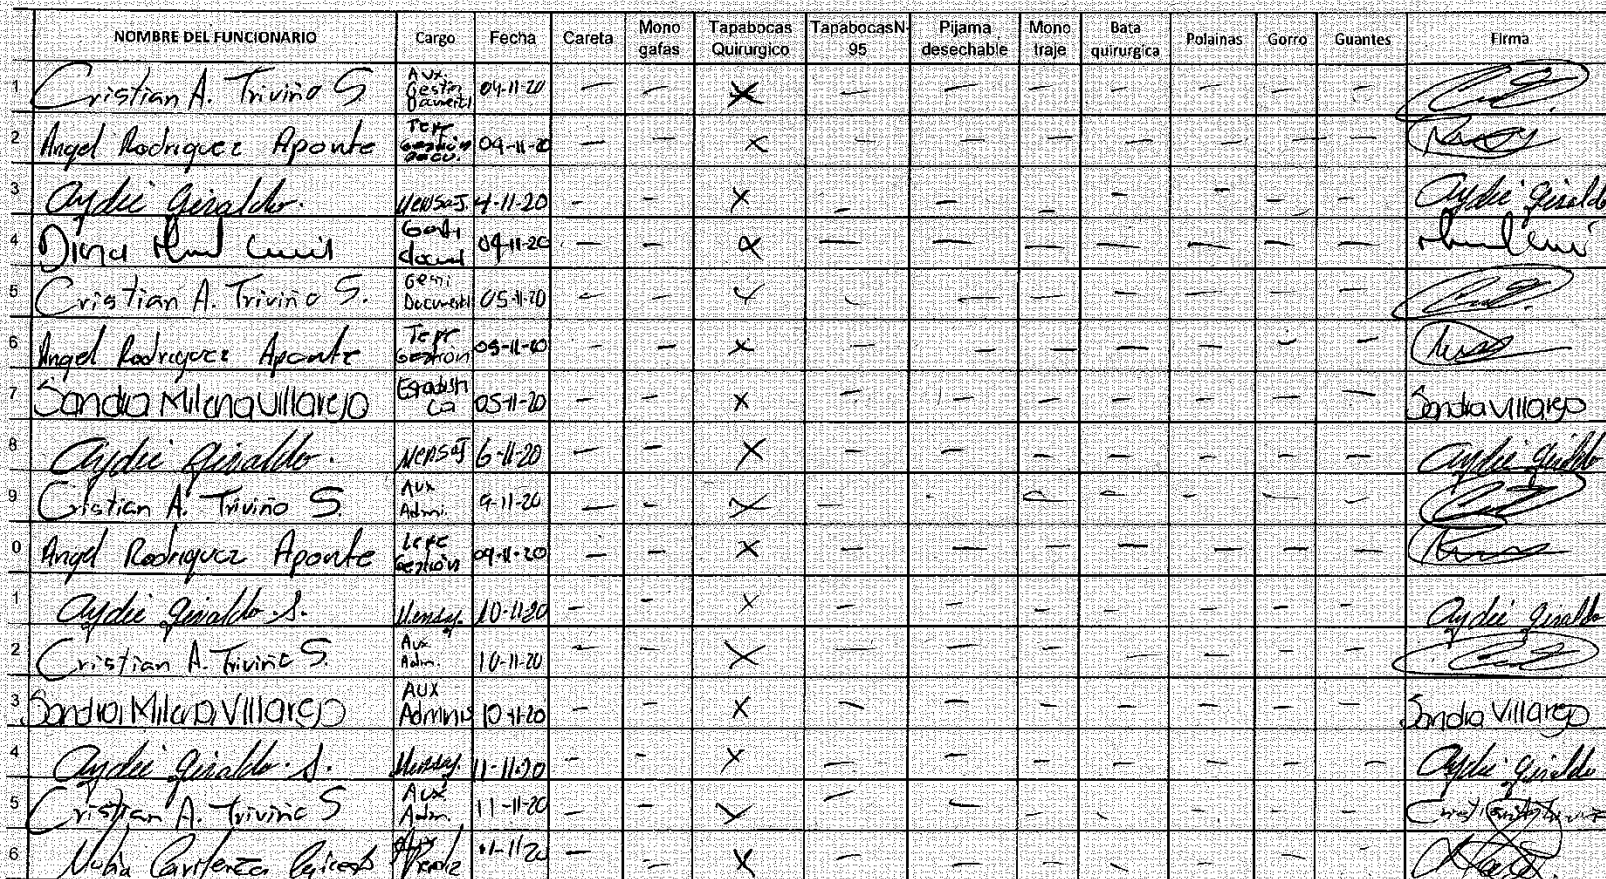 NOMBRE DEL FUNCIONARIO Cargo Fecha Careta Mono gafas Tapabocas Quirurgico TapabocasN-95 Pijama desechable Mono traje Bata quirurgica Polainas Gorro Guantes Firma
1 Cristian A. Triviño S Aux. Gestin 04-11-20 — — X — — — — — — —
2 Angel Rodriguez Aponte 04-11-20 — — X — — — — — — —
3 Aydie Giraldo. Mensaj. 4-11-20 — — X — — — — — — — Aydie Giraldo
4 Diana 04-11-20 — — X — — — — — — —
5 Cristian A. Triviño S. 05-11-20 — — X — — — — — — —
6 Angel Rodriguez Aponte Gestion 05-11-20 — — X — — — — — — —
7 Sandra Milena Villarejo 05-11-20 — — X — — — — — — — Sandra Villarejo
8 Aydie Giraldo. Mensaj 6-11-20 — — X — — — — — — — Aydie Giraldo
9 Cristian A. Triviño S. Aux Admi. 9-11-20 — X — — — — — —
0 Angel Rodriguez Aponte Gestion 09-11-20 — — X — — — — — — —
1 Aydie Giraldo S. Mensaj. 10-11-20 — — X — — — — — — — Aydie Giraldo
2 Cristian A. Triviño S. Aux Adm. 10-11-20 — — X — — — — — — —
3 Sandra Milena Villarejo Aux Adminis 10-11-20 — — X — — — — — — — Sandra Villarejo
4 Aydie Giraldo S. Mensaj. 11-11-20 — — X — — — — — — — Aydie Giraldo
5 Cristian A. Triviño S Aux. Adm. 11-11-20 — — X — — — — — — —
6 Nubia 11-11-20 — — X — — — — — — —